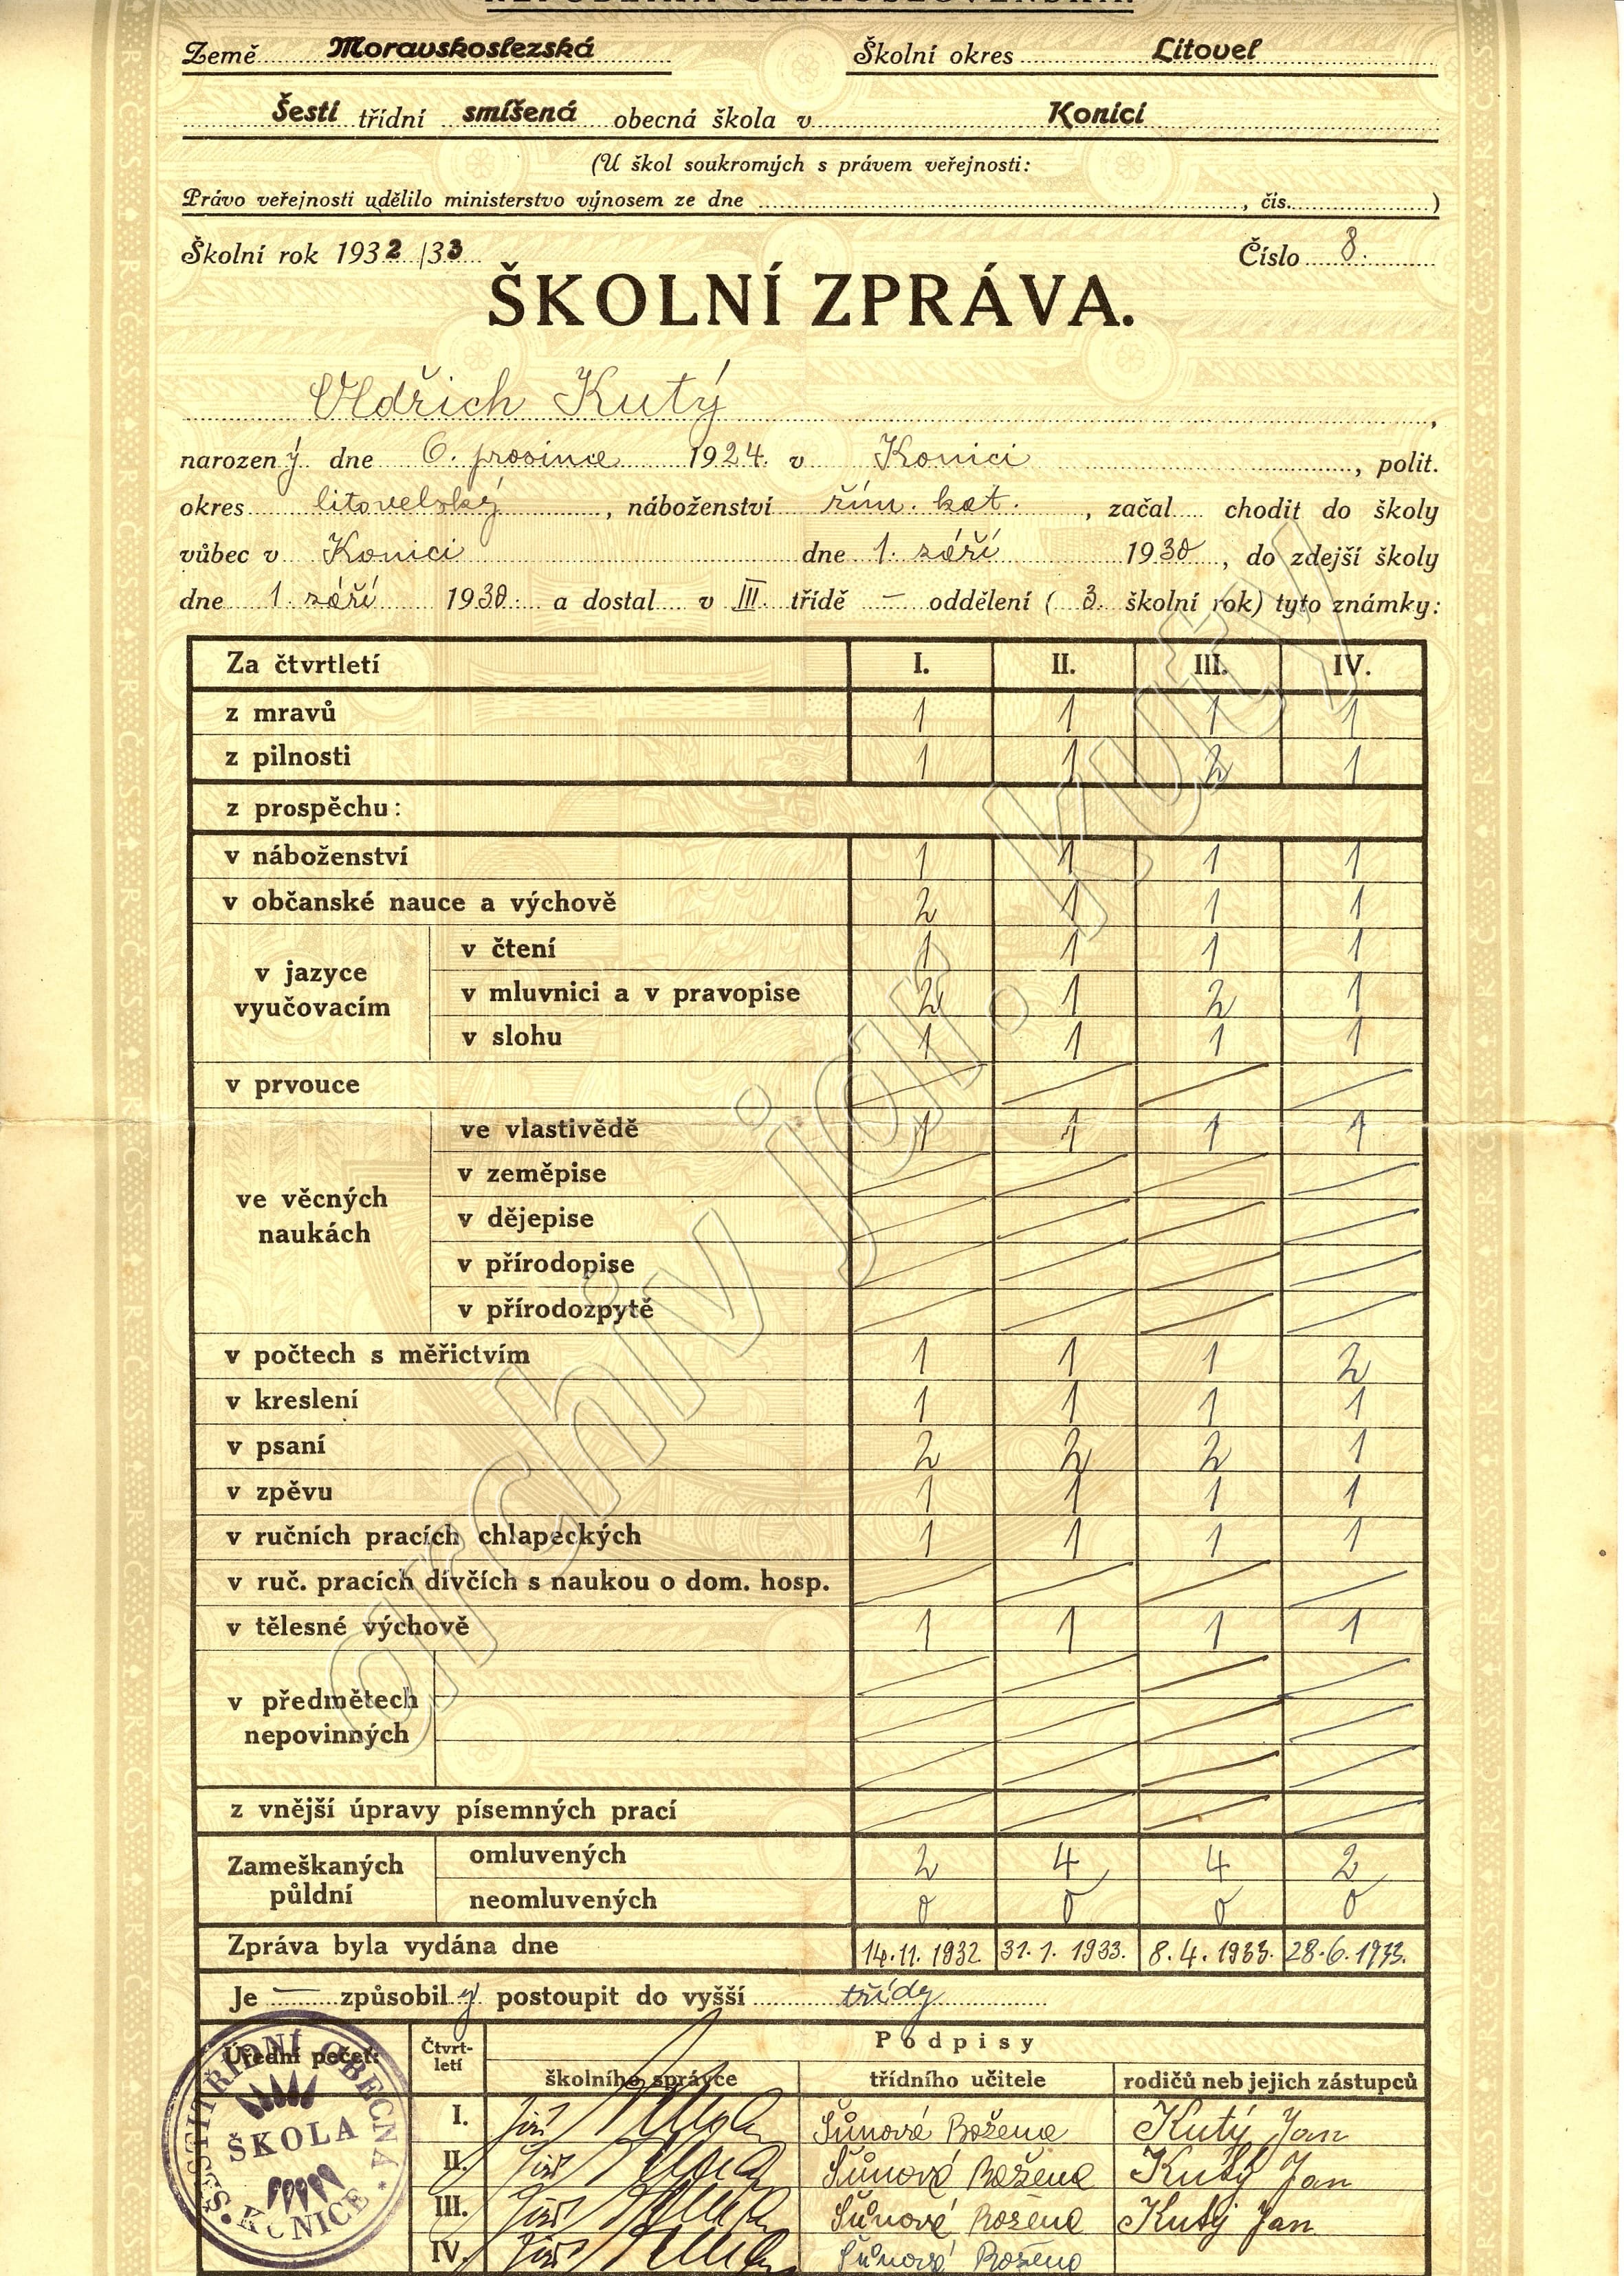 REPUBLIKA ČESKOSLOVENSKÁ.
Země Moravskoslezská Školní okres Litovel
Šesti třídní smíšená obecná škola v Konici
(U škol soukromých s právem veřejnosti:
Právo veřejnosti udělilo ministerstvo výnosem ze dne , čís. )
Školní rok 1932/33 Číslo 8.
ŠKOLNÍ ZPRÁVA.
Oldřich Kutý,
narozený dne 6. prosince 1924. v Konici, polit.
okres litovelský, náboženství řím. kat., začal chodit do školy
vůbec v Konici dne 1. září 1930, do zdejší školy
dne 1. září 1930. a dostal v III. třídě — oddělení (3. školní rok) tyto známky:
Za čtvrtletí I. II. III. IV.
z mravů 1 1 1 1
z pilnosti 1 1 2 1
z prospěchu:
v náboženství 1 1 1 1
v občanské nauce a výchově 2 1 1 1
v jazyce vyučovacím
v čtení 1 1 1 1
v mluvnici a v pravopise 2 1 2 1
v slohu 1 1 1 1
v prvouce
ve věcných naukách
ve vlastivědě 1 1 1 1
v zeměpise
v dějepise
v přírodopise
v přírodozpytě
v počtech s měřictvím 1 1 1 2
v kreslení 1 1 1 1
v psaní 2 2 2 1
v zpěvu 1 1 1 1
v ručních pracích chlapeckých 1 1 1 1
v ruč. pracích dívčích s naukou o dom. hosp.
v tělesné výchově 1 1 1 1
v předmětech nepovinných
z vnější úpravy písemných prací
Zameškaných půldní
omluvených 2 4 4 2
neomluvených 0 0 0 0
Zpráva byla vydána dne 14.11.1932. 31.1.1933. 8.4.1933. 28.6.1933.
Je — způsobilý postoupit do vyšší třídy
Úřední pečeť: Čtvrtletí Podpisy
školního správce třídního učitele rodičů neb jejich zástupců
I. Šůnová Božena Kutý Jan
II. Šůnová Božena Kutý Jan
III. Šůnová Božena Kutý Jan
IV. Šůnová Božena
ŠESTITŘÍDNÍ OBECNÁ
ŠKOLA
KONICE
archiv jar. kutý